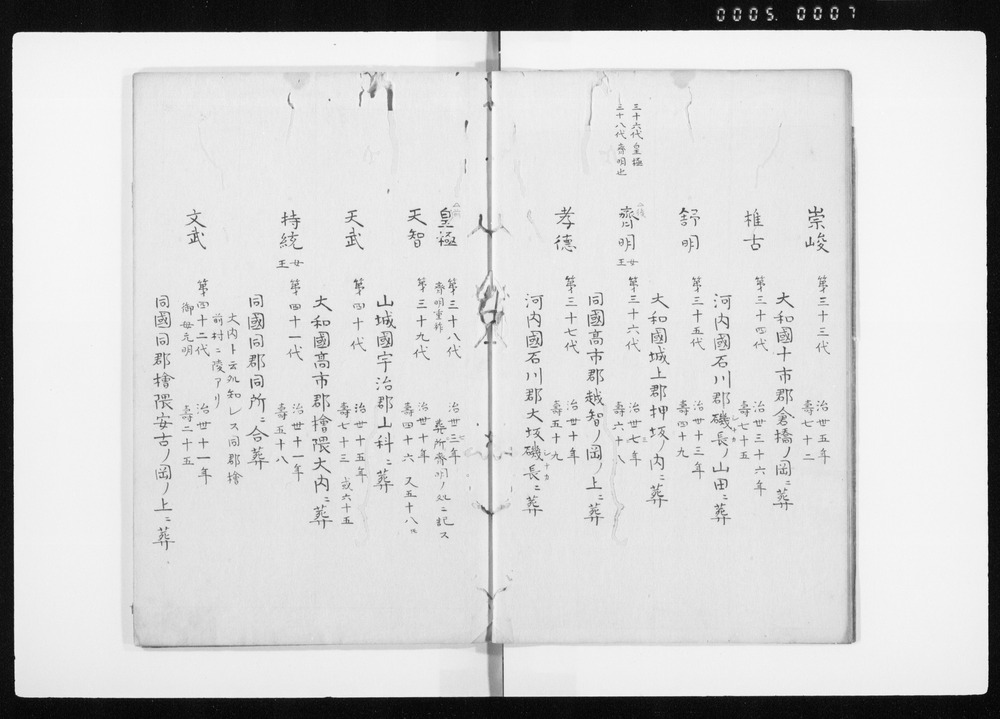 0005. 0007
崇峻
第三十三代
治世五年
壽七十二
大和國十市郡倉橋ノ岡ニ葬
推古
第三十四代
治世三十六年
壽七十五
河内國石川郡磯長ノ山田ニ葬
舒明
第三十五代
治世十三年
壽四十九
大和國城上郡押坂ノ内ニ葬
三十六代皇極
三十八代齊明也
齊明
女王
第三十六代
治世七年
壽六十八
同國高市郡越智ノ岡ノ上ニ葬
孝德
第三十七代
治世十年
壽五十九
河内國石川郡大坂磯長ニ葬
皇極
第三十八代
齊明重祚
治世三年
葬所齊明ノ処ニ記ス
天智
第三十九代
治世十年
壽四十六 又五十八ト
山城國宇治郡山科ニ葬
天武
第四十代
治世十五年
壽七十三 或六十五
大和國高市郡檜隈大内ニ葬
持統
女王
第四十一代
治世十一年
壽五十八
同國同郡同所ニ合葬
大内ト云処知レス同郡檜
前村ニ陵アリ
文武
第四十二代
御母元明
治世十一年
壽二十五
同國同郡檜隈安古ノ岡ノ上ニ葬